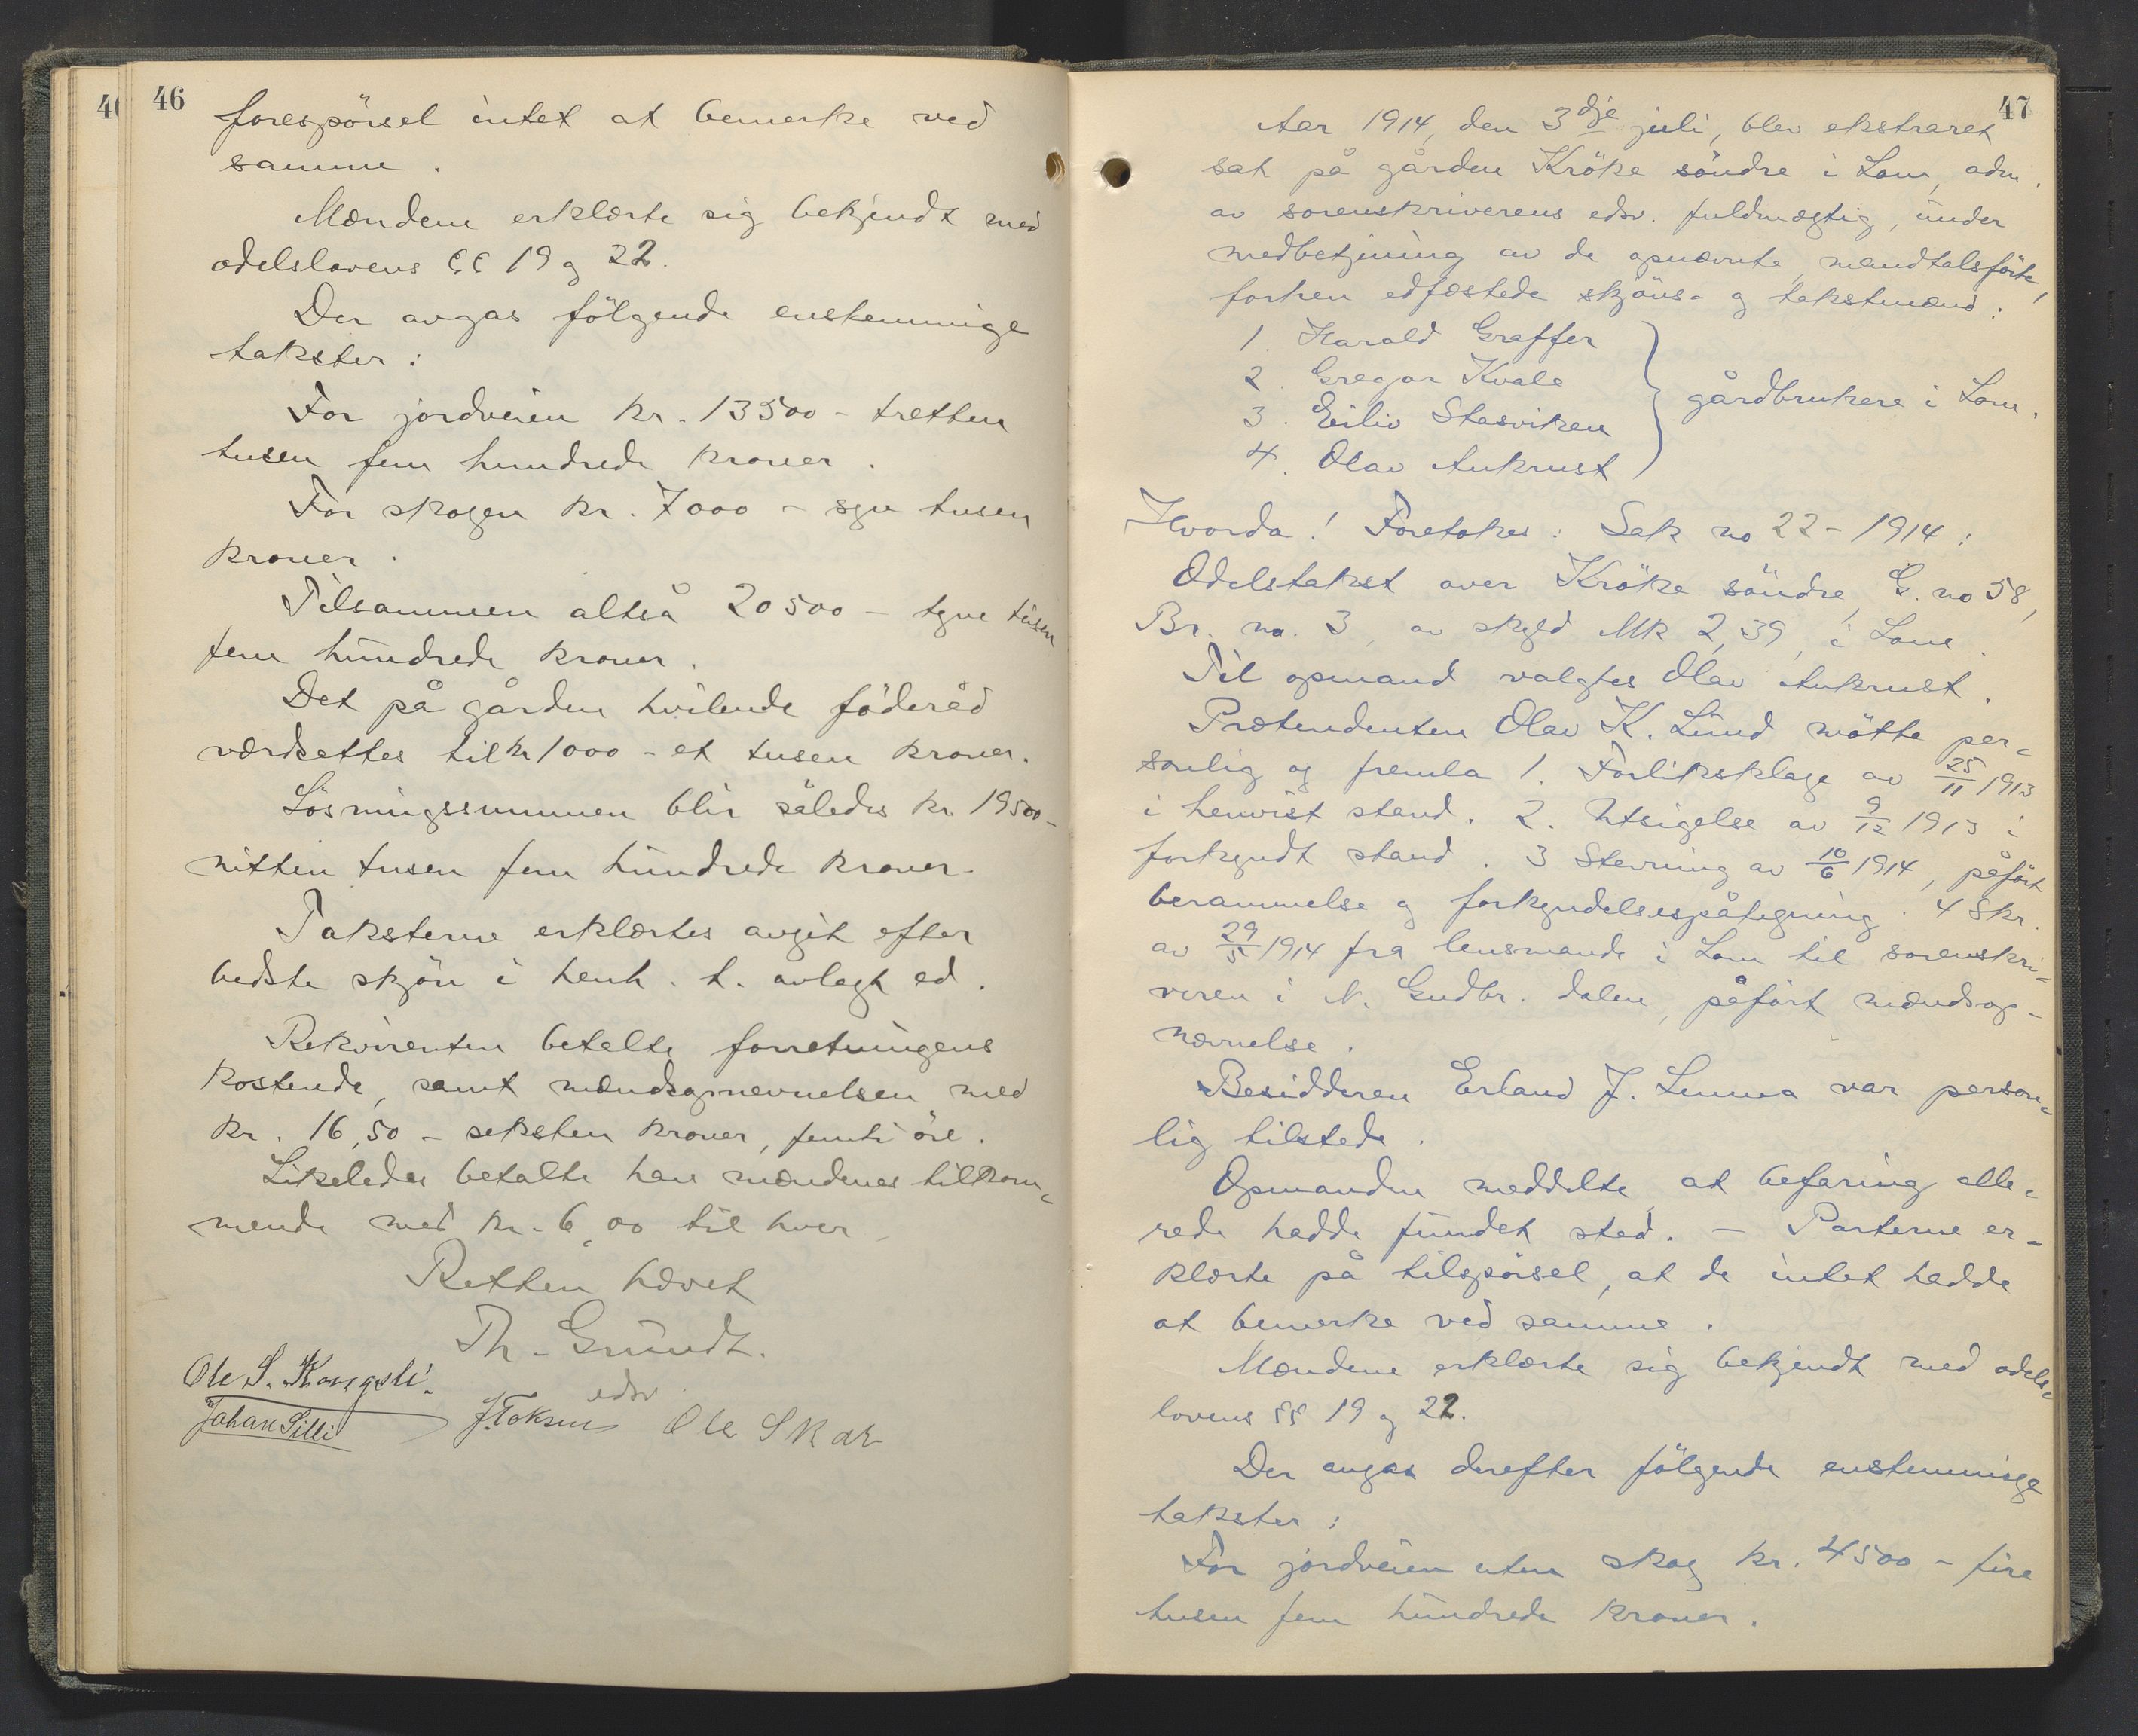 46
forespörsel intet at bemerke ved
samme.
Mændene erklærte sig bekjendt med
odelslovens §§ 19 g 22.
Der avgas fölgende enstemmige
takster:
For jordveien kr. 13500 - tretten
tusen fem hundrede kroner.
For skogen kr. 7000 - syv tusen
kroner.
Tilsammen altså 20500 - tyve tusen
fem hundrede kroner.
Det på gården hvilende föderåd
værdsettes til kr 1000 - et tusen kroner.
Lösningssummen blir således kr. 19500-
nitten tusen fem hundrede kroner.
Taksterne erklærtes avgit efter
bedste skjön i henh. t. avlagt ed.
Rekvirenten betalte forretningens
kostende, samt mændsopnevnelsen med
kr. 16,50 - seksten kroner, femti öre.
Likeledes betalte han mændenes tilkom-
mende med kr. 6,00 til hver
Retten hævet
Th. Grundt.
edsv
Ole S. Kongsli.
Johan Silli
Ole Skar
47
Aar 1914, den 3dje juli, blev ekstraret
sat på gården Kröke söndre i Lom, adm.
av sorenskriverens edsv. fuldmægtig, under
medbetjening av de opnævnte, mandtalsförte,
forhen edfæstede skjöns- g takstmænd:
1. Harald Graffer
2. Gregar Kvale
3. Eiliv Stasviken
4. Olav Aukrust
gårdbrukere i Lom.
Hvorda! Foretokes: Sak no 22 - 1914:
Odelstakst over Kröke söndre, G. no 58,
Br. no. 3, av skyld Mk 2,39, i Lom.
Til opmand valgtes Olav Aukrust.
Prætendenten Olav K. Lund mötte per-
sonlig og fremla 1. Forliksklage av 25/11 1913
i henvist stand. 2. Utsigelse av 9/12 1913 i
forkyndt stand. 3 Stevning av 10/6 1914, påfört
berammelse g forkyndelsespåtegning. 4 Skr.
av 29/5 1914 fra lensmande i Lom til sorenskri-
veren i N. Gudbr. dalen, påfört mændsop-
nævnelse.
Besidderen Erland J. Lunna var person-
lig tilstede.
Opmanden meddelte, at befaring alle-
rede hadde fundet sted. - Parterne er-
klærte på tilspörsel, at de intet hadde
at bemerke ved samme.
Mændene erklærte sig bekjendt med odels-
lovens §§ 19 g 22.
Der avgas derefter fölgende enstemmige
takster:
For jordveien uten skog kr. 4500 - fire
tusen fem hundrede kroner.